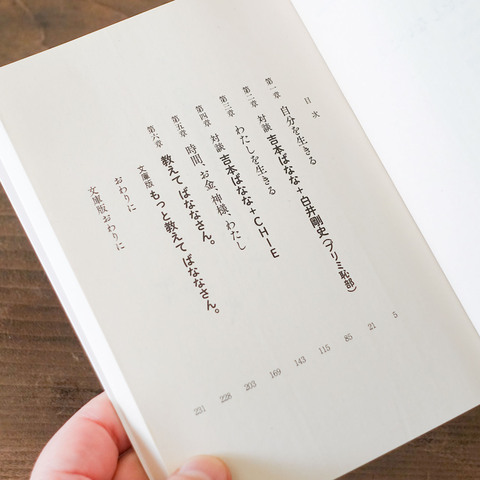 目次
第一章 自分を生きる 5
第二章 対談 吉本ばなな+白井剛史(プリミ恥部) 21
第三章 わたしを生きる 85
第四章 対談 吉本ばなな+CHIE 115
第五章 時間、お金、神様、わたし 143
第六章 教えて ばななさん。 169
文庫版 もっと教えて ばななさん。 203
おわりに 228
文庫版おわりに 231